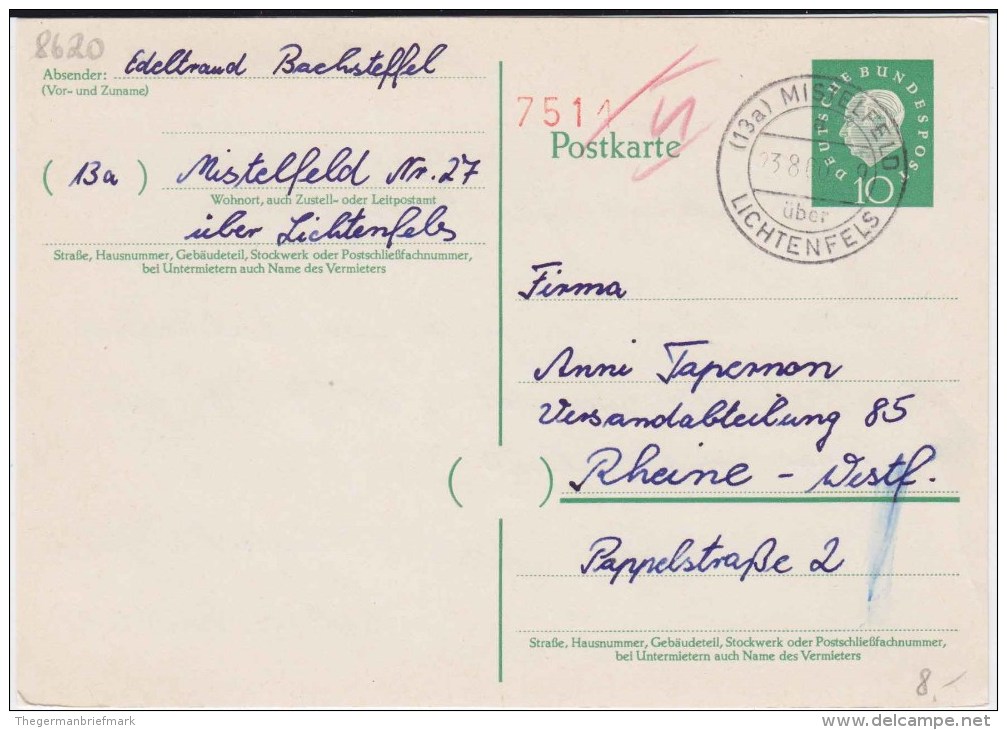 8620
Absender: Edeltraud Bachsteffel
(Vor- und Zuname)
(13a) Mistelfeld Nr. 27
Wohnort, auch Zustell- oder Leitpostamt
über Lichtenfels
Straße, Hausnummer, Gebäudeteil, Stockwerk oder Postschließfachnummer,
bei Untermietern auch Name des Vermieters
7511
Postkarte
(13a) MISTELFELD
23.8.60
über
LICHTENFELS
DEUTSCHE BUNDESPOST
10
Firma
Anni Tapernon
Versandabteilung 85
( ) Rheine - Westf.
Pappelstraße 2
Straße, Hausnummer, Gebäudeteil, Stockwerk oder Postschließfachnummer,
bei Untermietern auch Name des Vermieters
8,-
Thegermanbriefmark
www.delcampe.net